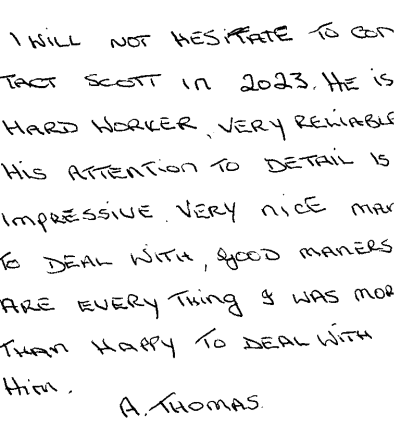 I WILL NOT HESITATE TO CON
TACT SCOTT in 2023. HE is
HARD WORKER, VERY RELIABLE
His ATTENTION TO DETAIL IS
IMPRESSIVE. VERY nicE MAN
TO DEAL WITH, good MANERS
ARE EVERY Thing I WAS MOR
THAN HAPPY TO DEAL WITH
Him.
A. THOMAS.